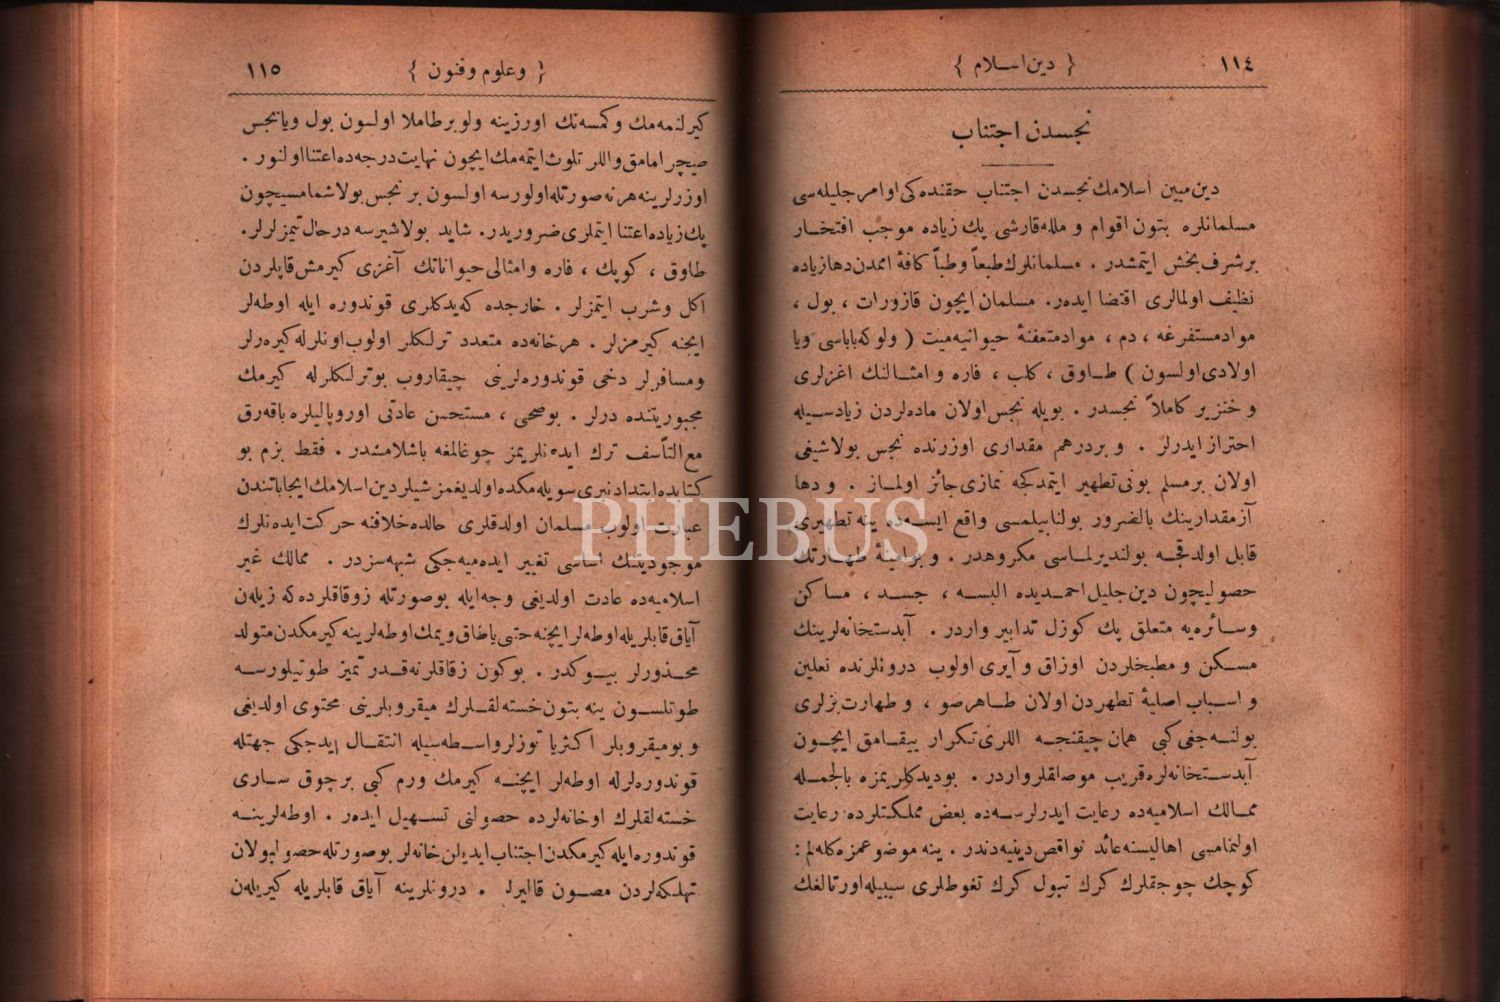 ١١٤ { دين اسلام }
نجسدن اجتناب
دين مبين اسلامك نجسدن اجتناب حقنده كی اوامر جليله سی
مسلمانلره بتون اقوام و ملله قارشی پك زياده موجب افتخار
بر شرف بخش ايتمشدر . مسلمانلرك طبعاً وطباً كافهٔ امدن دها زياده
نظيف اولمالری اقتضا ايدر . مسلمان ايچون قازورات ، بول ،
مواد مستفرغه ، دم ، مواد متعفنهٔ حيوانيه ميت ( ولو كه باباسی ويا
اولادی اولسون ) طاوق ، كلب ، فاره و امثالنك اغزلری
و خنزير كاملاً نجسدر . بويله نجس اولان ماده لردن زياده سيله
احتراز ايدرلر . و بر درهم مقداری اوزرنده نجس بولاشيغی
اولان بر مسلم بونی تطهير ايتمدكجه نمازی جائز اولماز . و دها
آز مقدارينك بالضرور بولنابيلمسی واقع ايسه ده ينه تطهيری
قابل اولدقجه بولنديرلماسی مكروهدر . و بو طهارتك
حصوليچون دين جليل احمديده البسه ، جسد ، مساكن
وسائره يه متعلق پك كوزل تدابير واردر . آبدستخانه لرينك
مسكن و مطبخلردن اوزاق و آيری اولوب درونلرنده نعلين
و اسباب اصليهٔ تطهردن اولان طاهر صو ، و طهارت بزلری
بولنه جغی كبی همان چيقنجه اللری تكرار ييقامق ايچون
آبدستخانه لره قريب موصلقلر واردر . بو ديدكلريمزه بالجمله
ممالك اسلاميه ده رعايت ايدرلرسه ده بعض مملكتلرده رعايت
اولنمامسی اهاليسنه عائد نواقص دينيه دندر . ينه موضوعمزه كله لم :
كوچك چوجقلرك كرك تبول كرك تغوطلری سببيله اورتالغك
{ و علوم و فنون } ١١٥
كيرلنمه مك و كمسه نك اورزينه ولو بر طاملا اولسون بول ويا نجس
صيچرامامق واللر تلوث ايتمه مك ايچون نهايت درجه ده اعتنا اولنور .
اوزرلرينه هر نه صورتله اولورسه اولسون بر نجس بولاشمامسيچون
پك زياده اعتنا ايتملری ضروريدر . شايد بولاشيرسه درحال تميزلرلر.
طاوق ، كوپك ، فاره وامثالی حيواناتك آغزی كيرمش قاپلردن
اكل و شرب ايتمزلر . خارجده كيدكلری قوندوره ايله اوطه لر
ايچنه كيرمزلر . هر خانه ده متعدد ترلكلر اولوب اونلرله كيررلر
ومسافرلر دخی قوندوره لرينی چيقاروب بو ترلكلرله كيرمك
مجبوريتنده درلر . بو صحی ، مستحسن عادتی اوروپاليلره باقه رق
مع التأسف ترك ايده نلريمز چوغالمغه باشلامشدر . فقط بزم بو
كتابده ابتدادنبری سويله مكده اولديغمز شيلر دين اسلامك ايجاباتندن
عبارت اولوب مسلمان اولدقلری حالده خلافنه حركت ايده نلرك
موجوديتنك اساسی تغيير ايده ميه جكی شبهه سزدر . ممالك غير
اسلاميه ده عادت اولديغی وجه ايله بو صورتله زوقاقلرده كه زيلن
آياق قابلريله اوطه لر ايچنه حتی ياطاق و يمك اوطه لرينه كيرمكدن متولد
محذورلر بيوكدر . بوكون زقاقلر نه قدر تميز طوتيلورسه
طوتلسون ينه بتون خسته لقلرك ميقروبلرينی محتوی اولديغی
و بو ميقروبلر اكثريا توزلر واسطه سيله انتقال ايده جكی جهتله
قوندوره لرله اوطه لر ايچنه كيرمك ورم كبی بر چوق ساری
خسته لقلرك او خانه لرده حصولنی تسهيل ايدر . اوطه لرينه
قوندوره ايله كيرمكدن اجتناب ايديلن خانه لر بو صورتله حصولبولان
تهلكه لردن مصون قالير . درونلرينه آياق قابلريله كيريلن
PHEBUS